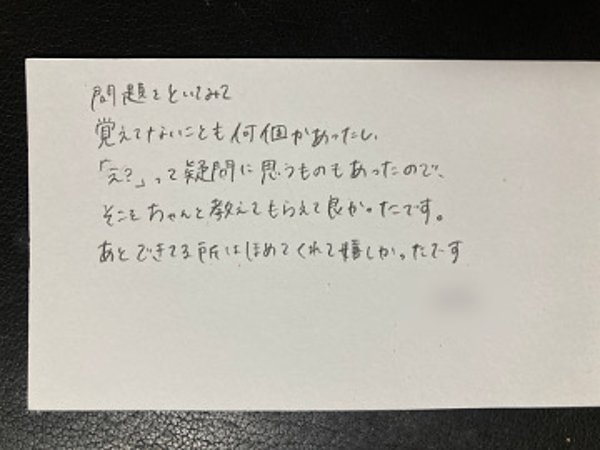 問題をといてみて
覚えてないことも何個かあったし、
「え?」って疑問に思うものもあったので、
そこをちゃんと教えてもらえて良かったです。
あとできてる所はほめてくれて嬉しかったです